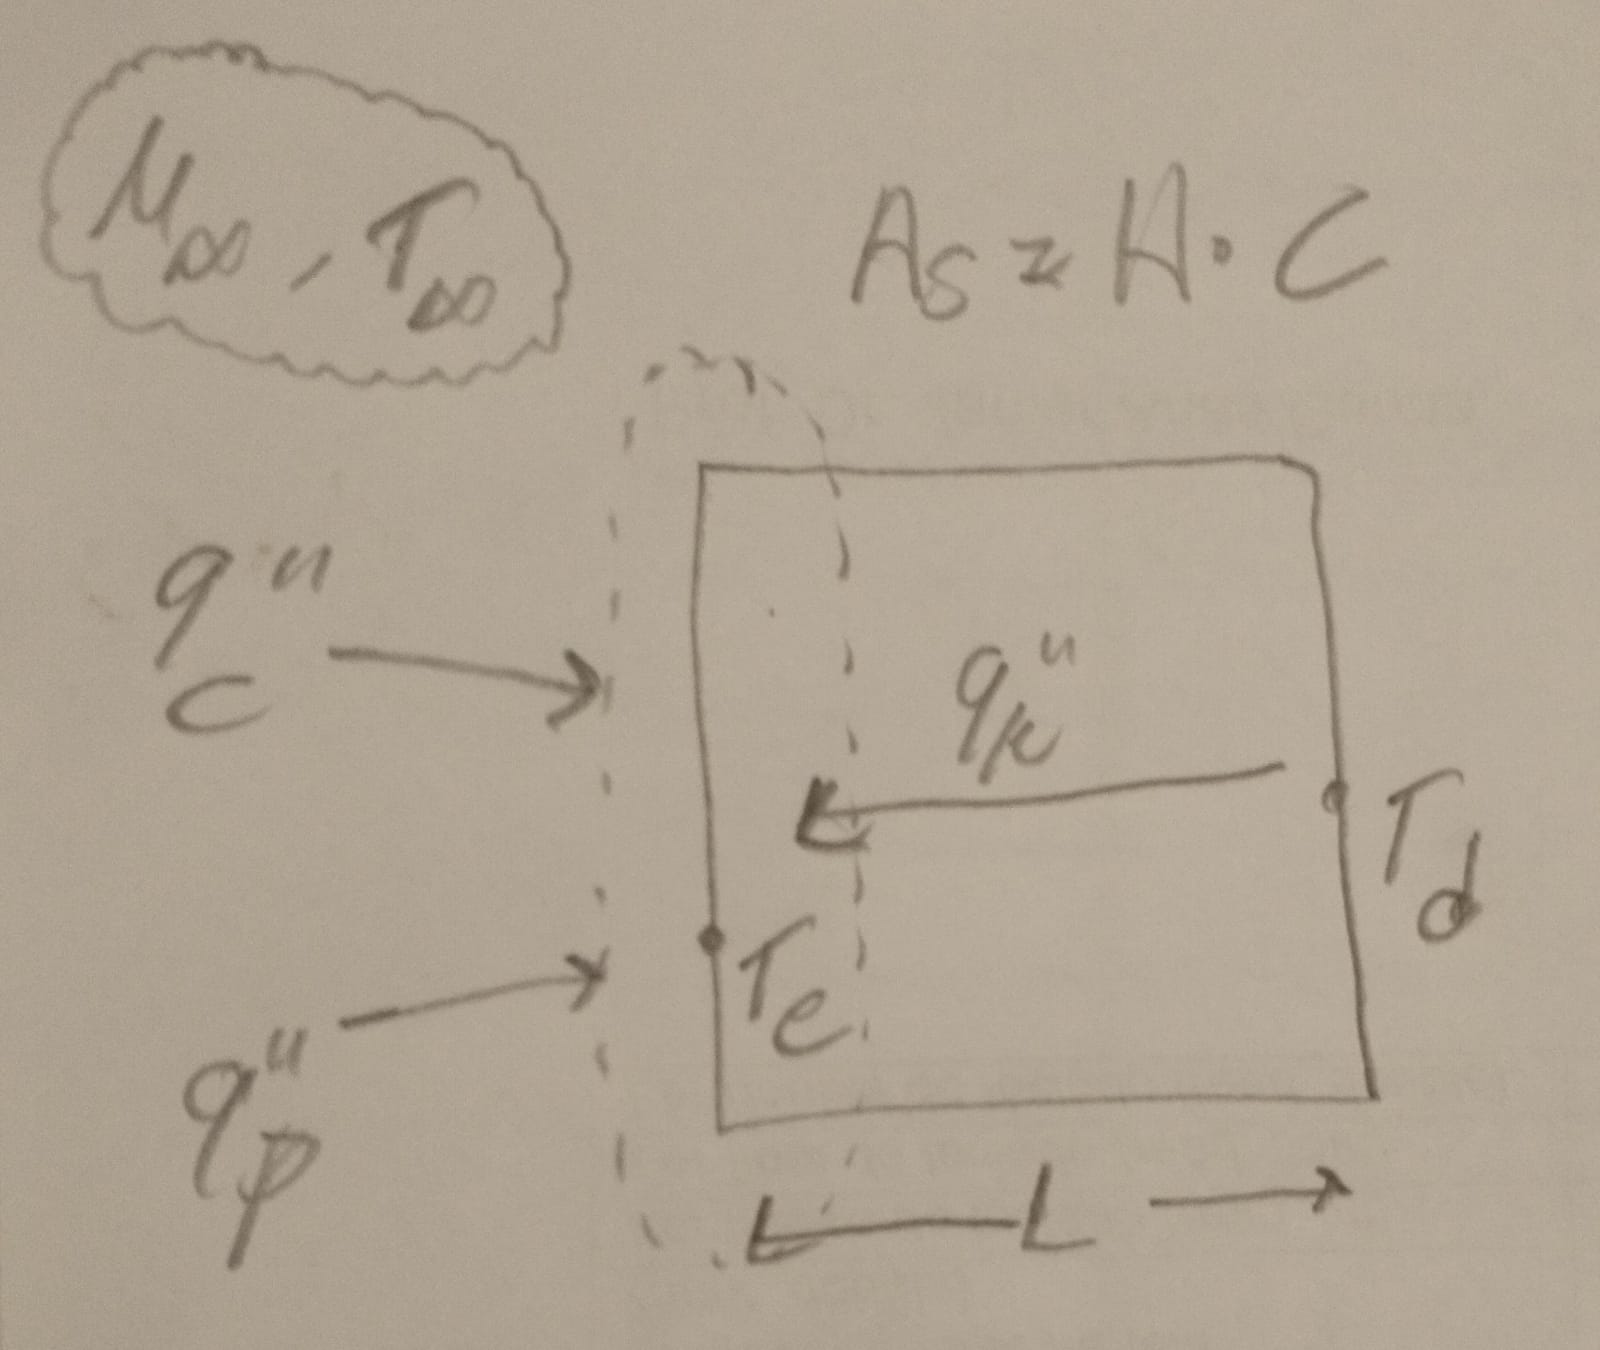 μ∞, T∞
As = H·C
q"c
q"k
Td
Te
q"p
L